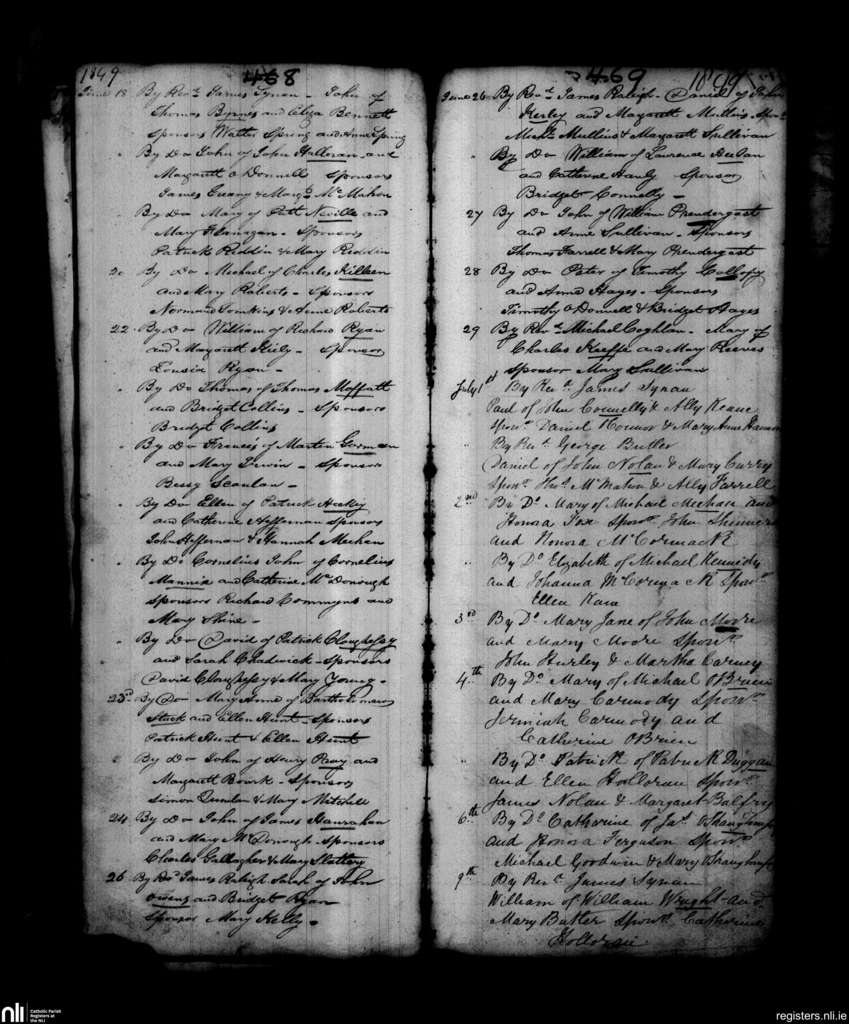 1849 468
June 18 By Revd. James Synan - John of
Thomas Byrnes and Eliza Bennett
Sponsors Walter Spring and Anne Spring
" By Do John of John Halloran and
Margarett O Donnell Sponsors
James & Margt. Mc Mahon
By Do Mary of Patt Neville and
Mary Flanagan - Sponsors
Patrick Reddin & Mary Reddin
20 By Do Michael of Charles Killeen
and Mary Roberts - Sponsors
Normand Tomkins & Anne Roberts
22 By Do William of Richard Ryan
and Margarett Kiely - Sponsor
Louisa Ryan -
" By Do Thomas of Thomas Moffatt
and Bridget Collins - Sponsors
Bridgt Collins
" By Do Francis of Martin Gorman
and Mary - Sponsor
Bessy Scanlan -
" By Do Ellen of Patrick
and Catherine Heffernan Sponsors
John Heffernan & Hannah Meehan
" By Do Cornelius John of Cornelius
Mannix and Catherine Mc Donough
Sponsors Richard Commyns and
Mary Shine -
" By Do David of Patrick Claughessy
and Sarah Chadwick - Sponsors
David Claughessy & Mary Young -
23d By Do Mary Anne of Bartholomew
Stack and Ellen Hunt - Sponsors
Patrick Hunt & Ellen Hunt
" By Do John of Henry and
Margarett Bourk - Sponsors
Simon Quinlan & Mary Mitchell
24 By Do John of James Hanrahan
and Mary Mc Donough Sponsors
Charles Gallagher & Mary Slattery
26 By Rd. James Raleigh Sarah of John
Owens and Bridget Ryan
Sponsor Mary Kelly -
469 1849
June 26 By Revd. James Raleigh - Daniel of John
and Margarett Mullins Spons
Michl. Mullins & Margarett Sullivan
By Do William of Laurence
and Catherine Hanly - Sponsor
Bridget Connelly -
27 By Do John of William Prendergast
and Anne Sullivan - Sponsors
Thomas Farrell & Mary Prendergast
28 By Do Peter of Timothy Collopy
and Anne Hayes - Sponsors
Timothy O Donnell & Bridget Hayes
29 By Revd. Michael Coghlan - Mary of
Charles Keeffe and Mary Reeves
Sponsor Mary Sullivan
July 1st By Revd. James Synan
Paul of John Connelly & Ally Keane
Spons. Daniel Connor & Mary Anne
" By Revd. George Butler
Daniel of John Nolan & Mary Curry
Spons. Thos. McMahon & Ally Farrell
2nd By Do. Mary of Michael Meehan and
Honora Fox Spons. John
and Honora McCormack
" By Do. Elizabeth of Michael Kennedy
and Johanna McCormack Spons.
Ellen
3rd By Do. Mary Jane of John Moore
and Mary Moore Spons.
John Hurley & Martha Carney
4th By Do. Mary of Michael O'Brien
and Mary Carmody Spons.
Jermiah Carmody and
Catherine O'Brien
" By Do. Patrick of Patrick Duggan
and Ellen Holloran Spons.
James Nolan & Margaret
6th By Do. Catherine of Jas. O'Shaughnessy
and Honora Ferguson Spons.
Michael Goodwin & Mary O'Shaughnessy
9th By Revd. James Synan
William of William Wright and
Mary Butler Spons. Catherine
Holloran
nli Catholic Parish
Registers at
the NLI
registers.nli.ie